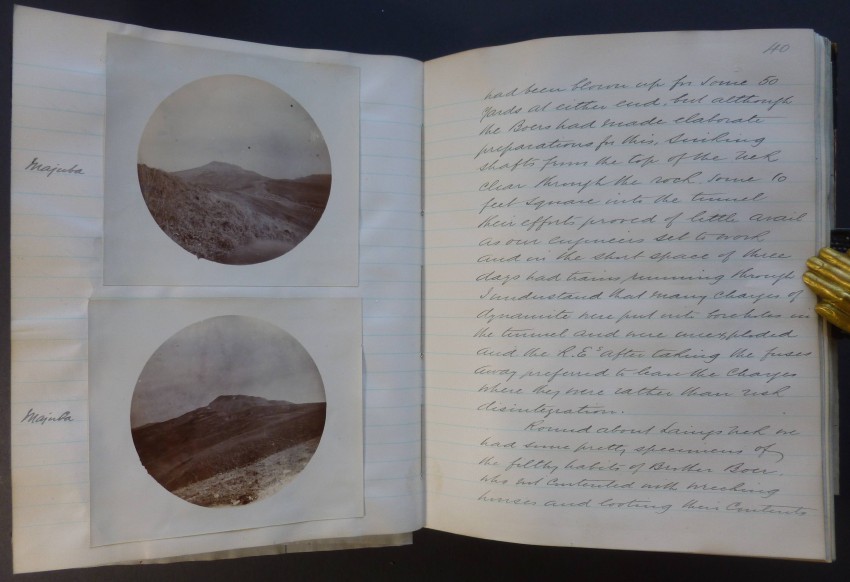 Majuba
Majuba
40
had been blown up for some 50
yards at either end. but although
the Boers had made elaborate
preparations for this, sinking
shafts from the top of the nek
clear through the rock some 10
feet square into the tunnel
their efforts proved of little avail
as our engineers set to work
and in the short space of three
days had trains running through
I understand that many charges of
dynamite were put into bore holes in
the tunnel and were unexploded
and the R.E.s after taking the fuses
away preferred to leave the charges
where they were rather than risk
disintegration.
Round about Laings Nek we
had some pretty specimens of
the filthy habits of Brother Boer.
who not contented with wrecking
houses and looting their contents